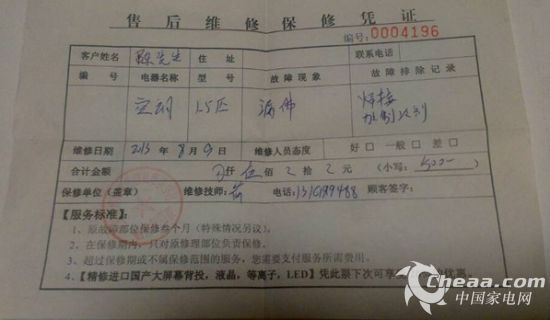 售后维修保修凭证
编号:0004196
客户姓名 陈先生 住址 联系电话
编号 电器名称 型号 故障现象 故障排除记录
空调 1.5匹 漏佛 焊接
加制冷剂
维修日期 2013 年 8 月 9 日 维修人员态度 好口 一般口 差口
合计金额 仟 伍 佰 拾 元 (小写: 500)
保修单位(盖章) 维修技师: 电话: 顾客签字:
【服务标准】:
1、原故障部位保修叁个月(特殊情况另议)。
2、在保修期内,只对原修理部位负责保修。
3、超过保修期或不属保修范围的服务,您需要支付服务所需费用。
4、【精修进口国产大屏幕背投,液晶,等离子,LED】凭此票下次可享
Cheaa.com
中国家电网